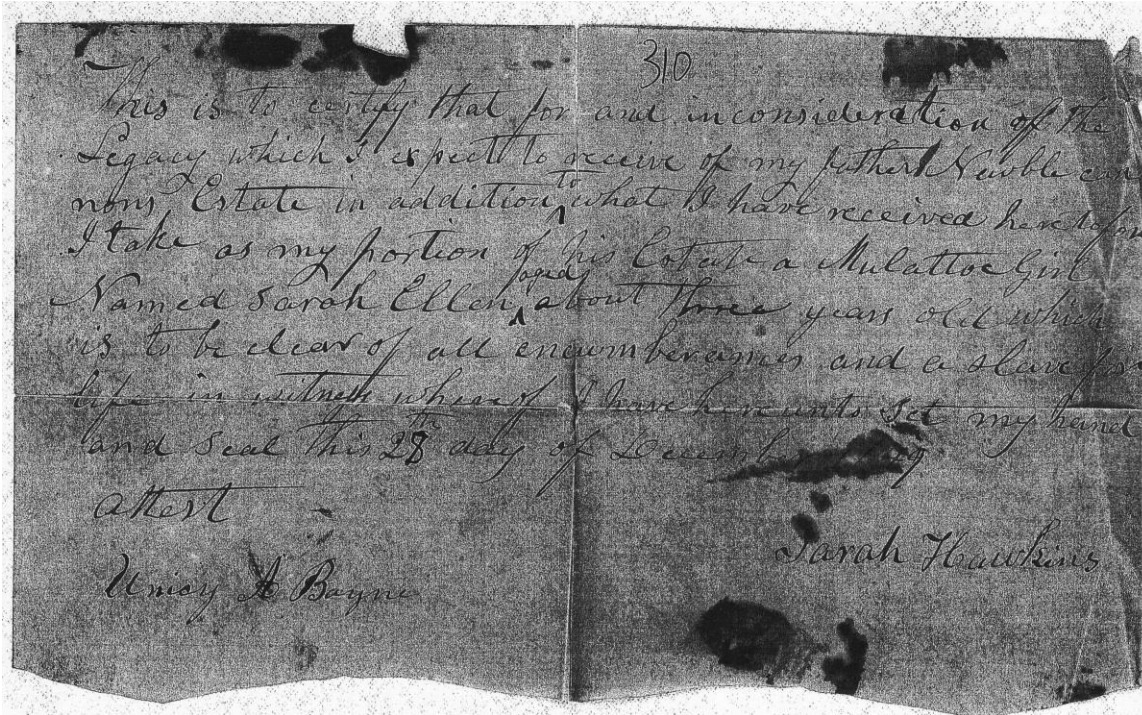 310
This is to certify that for and inconsideration of the
Legacy which I expect to receive of my father Newble can
nons Estate in addition to what I have received heretofor
I take as my portion of his Estate a Mulattoe Girl
Named Sarah Ellen, aged about three years old which
is to be clear of all encumberances and a slave for
life in witness whereof I have hereunto set my hand
and seal this 28th day of
attest
Sarah Hawkins
Unicy A Bayne